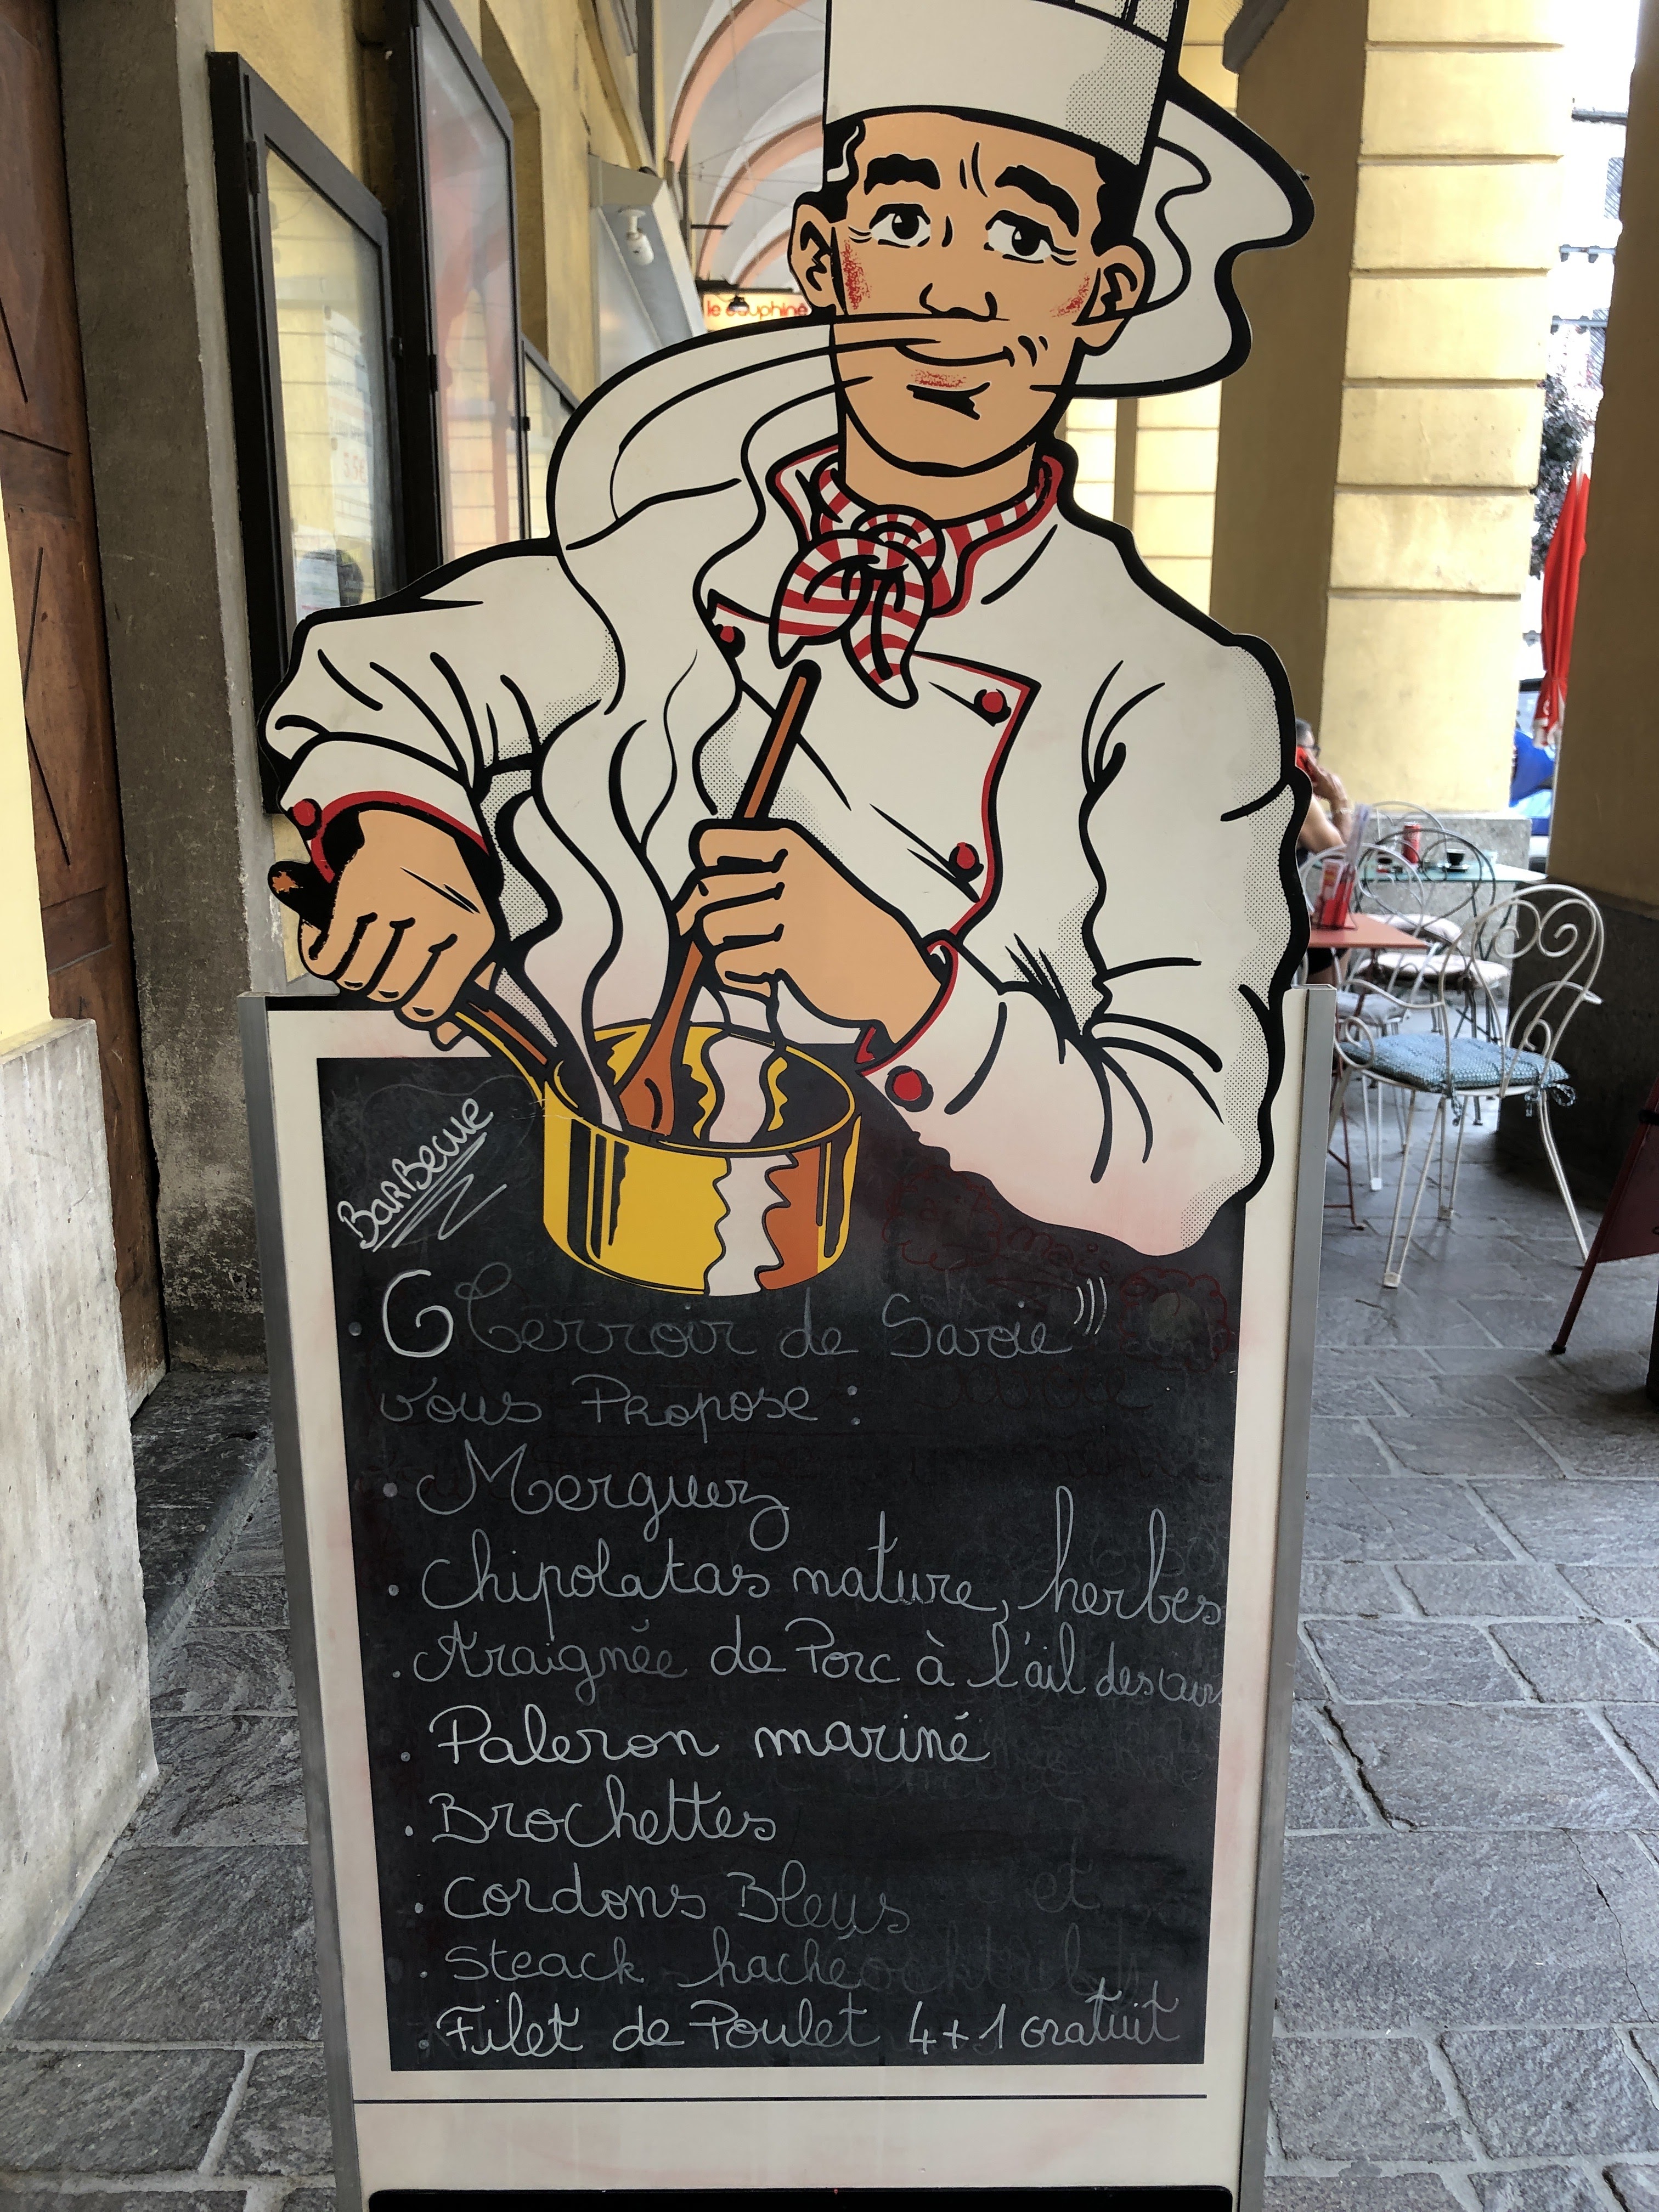 le dauphiné
BarBecue
G Terroir de Savoie
vous Propose :
. Merguez
. Chipolatas nature, herbes
. Araignée de Porc à l'ail des ours
. Paleron mariné
. Brochettes
. cordons Bleus
et
. steack haché
. Filet de Poulet 4+1 Gratuit